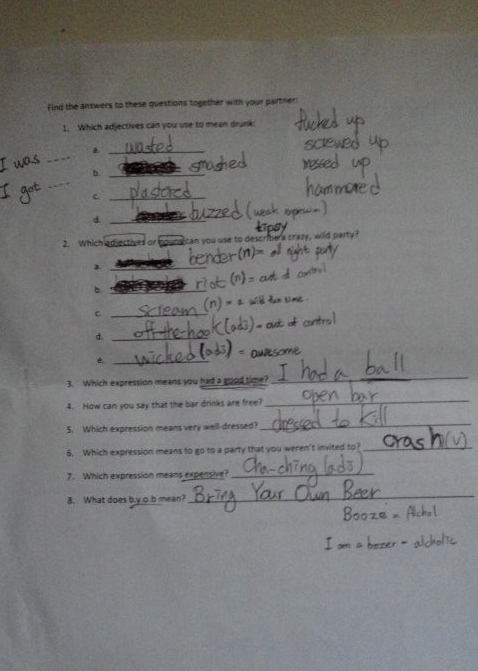 Find the answers to these questions together with your partner:
1. Which adjectives can you use to mean drunk: fucked up
a. wasted screwed up
I was ---- b. smashed messed up
I got ---- c. plastered hammored
d. buzzed (weak expression)
tipsy
2. Which adjectives or nouns can you use to describe a crazy, wild party?
a. bender (n) = all night party
b. riot (n) = out of control
c. scream (n) = a wild fun time.
d. off-the-hook (adj) = out of control
e. wicked (adj) = awesome
3. Which expression means you had a good time? I had a ball
4. How can you say that the bar drinks are free? open bar
5. Which expression means very well-dressed? dressed to kill
6. Which expression means to go to a party that you weren't invited to? crash (v)
7. Which expression means expensive? Cha-ching (adj)
8. What does b.y.o.b mean? Bring Your Own Beer
Booze = Alchol
I am a bozer = alcholic